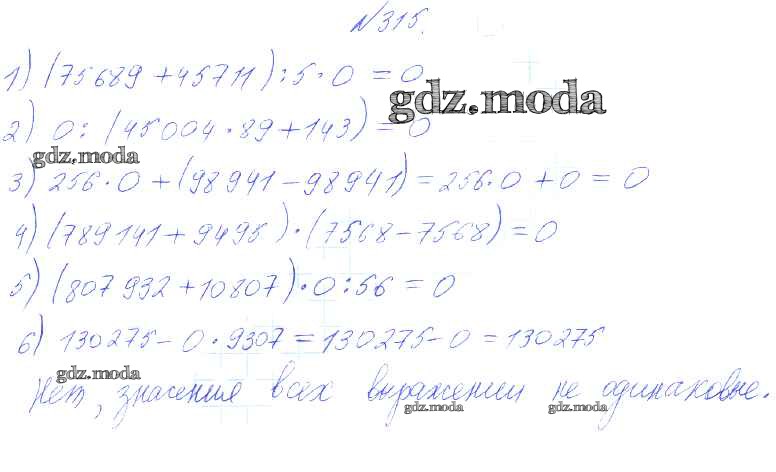 №315.
1) (75689+45711):5·0=0
gdz.moda
2) 0:(45004·89+143)=0
gdz.moda
3) 256·0+(98941-98941)=256·0+0=0
4) (789141+9495)·(7568-7568)=0
5) (807932+10807)·0:56=0
6) 130275-0·9307=130275-0=130275
gdz.moda
Нет, значения всех выражении не одинаковые.
gdz.moda gdz.moda